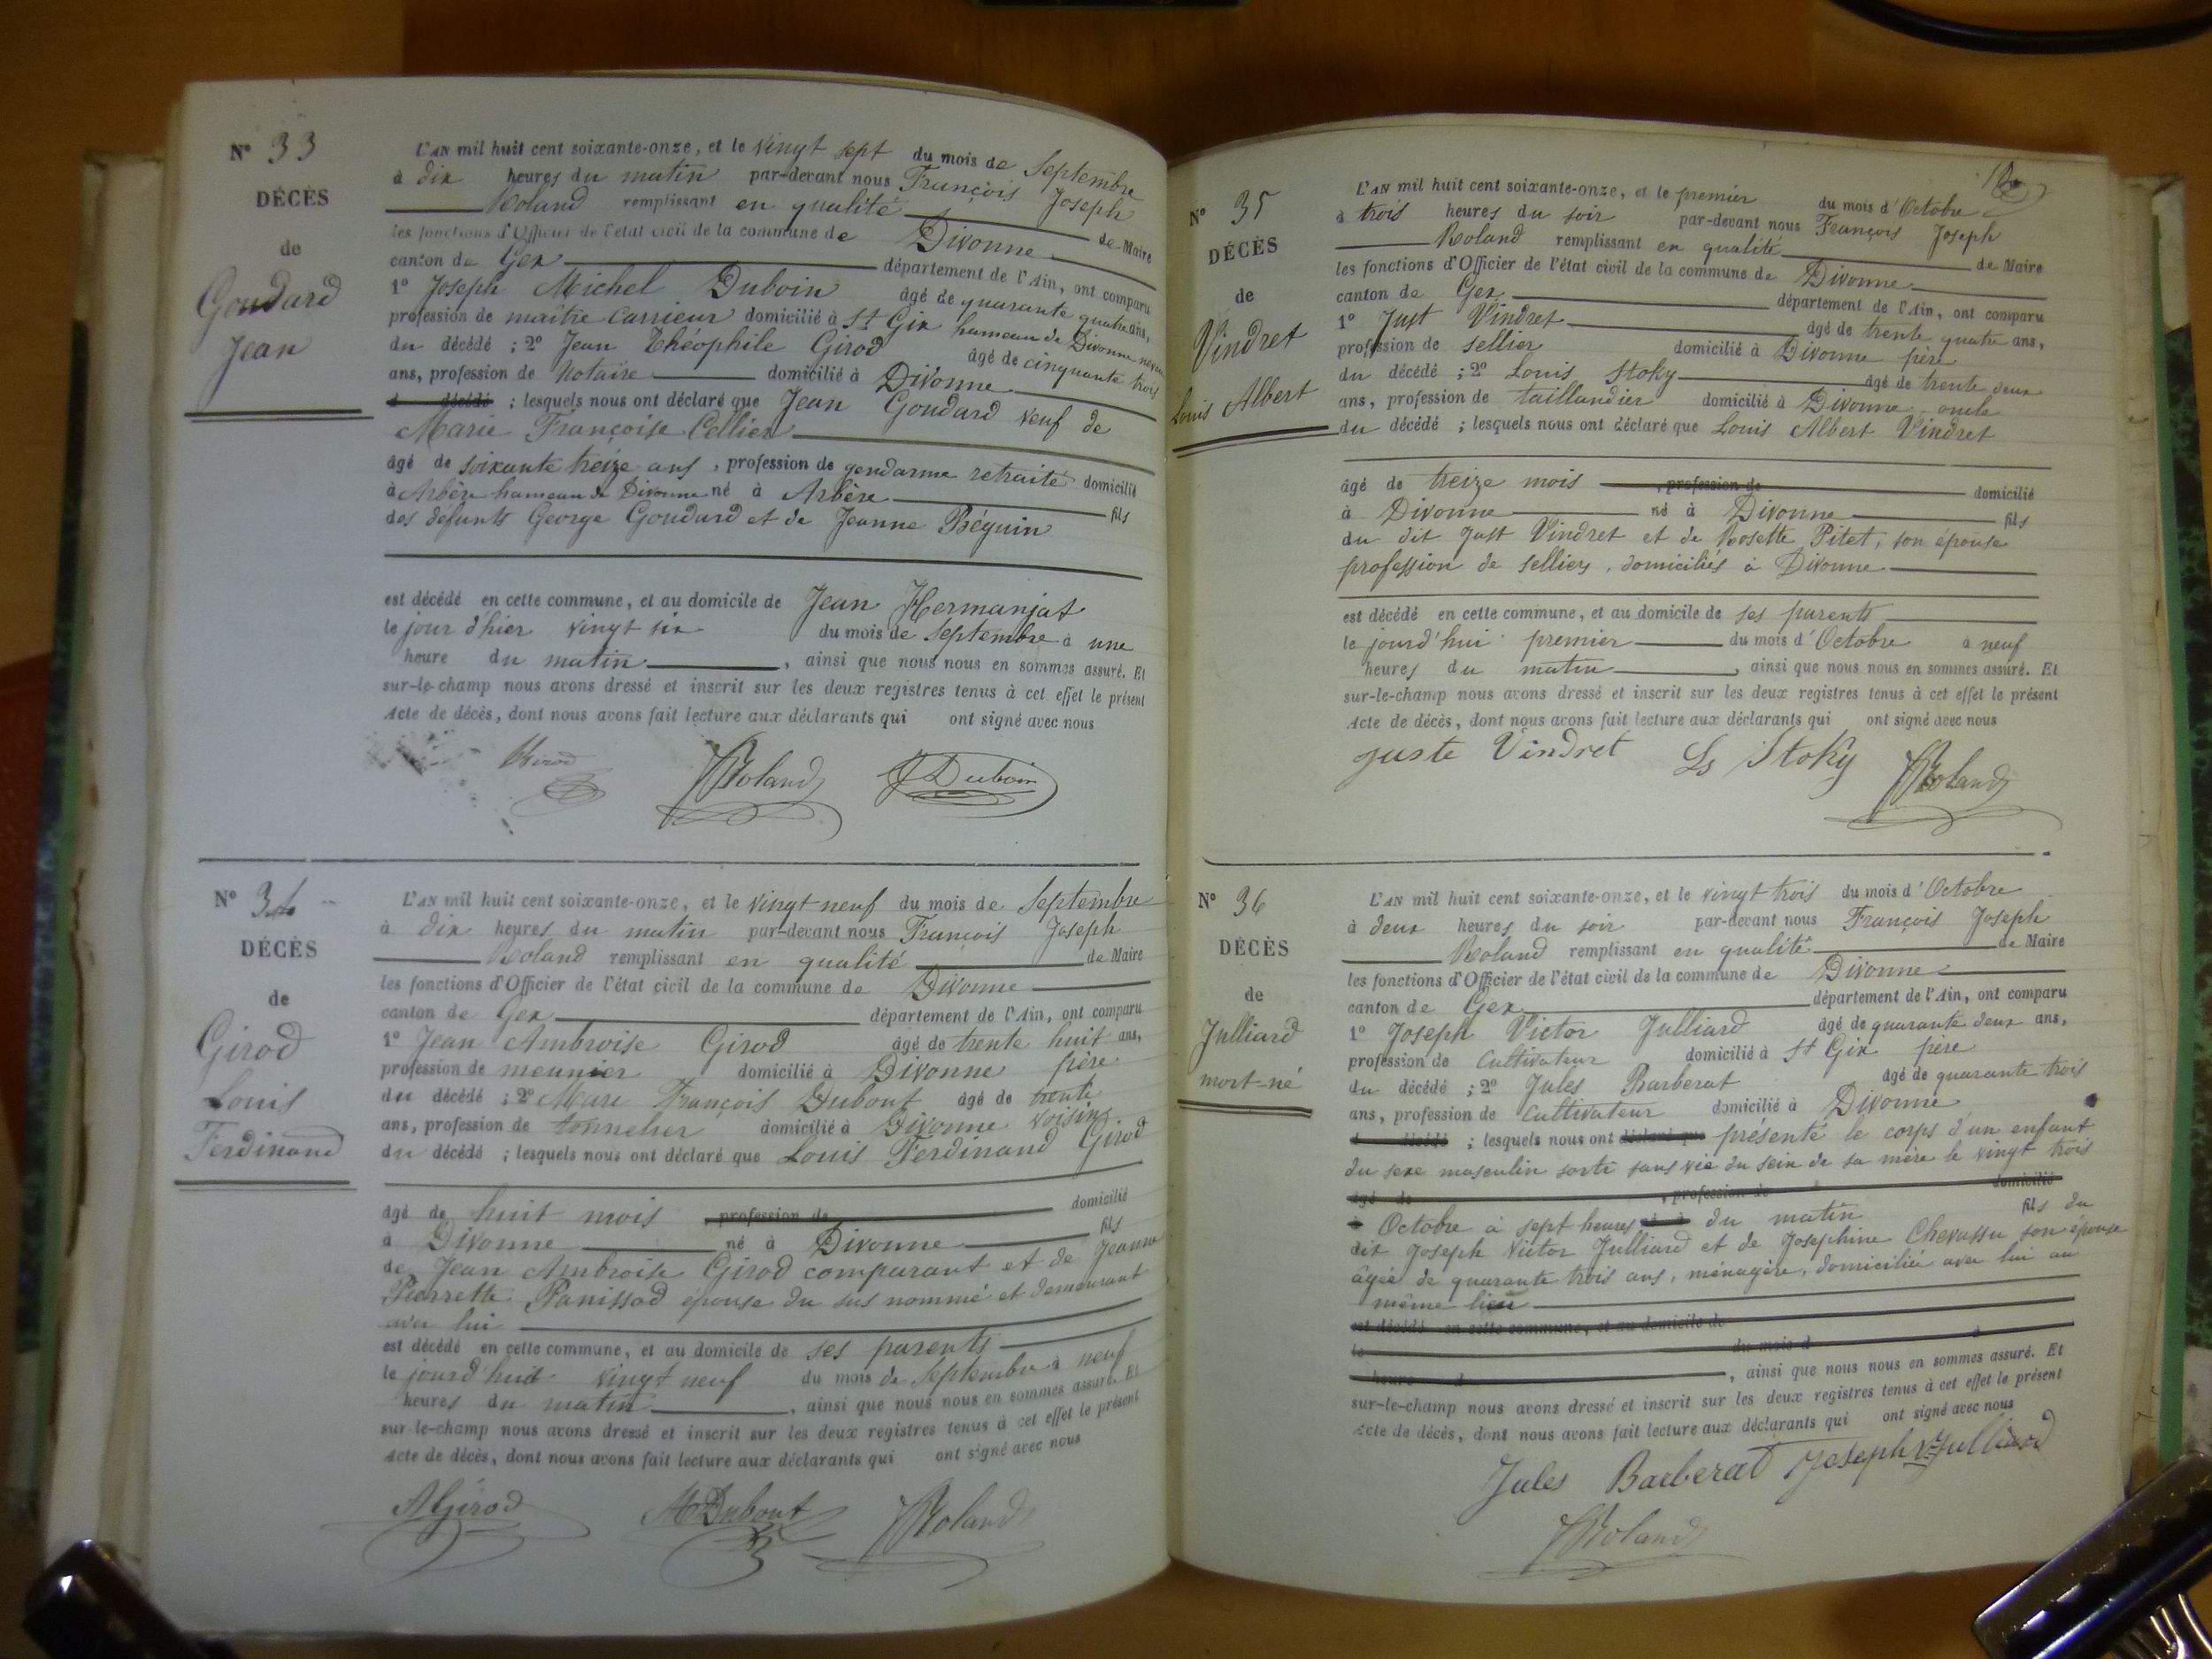 N° 33
DÉCÈS
de
Goudard
Jean
L'AN mil huit cent soixante-onze, et le vingt sept du mois de Septembre
à dix heures du matin par-devant nous François Joseph
Roland remplissant en qualité de Maire
les fonctions d'Officier de l'état civil de la commune de Divonne
canton de Gex département de l'Ain, ont comparu
1° Joseph Michel Duboin âgé de quarante quatre ans,
profession de maître carrieur domicilié à St Gix hameau de Divonne neveu
du décédé ; 2° Jean Théophile Girod âgé de cinquante trois
ans, profession de Notaire domicilié à Divonne
d décédé ; lesquels nous ont déclaré que Jean Goudard veuf de
Marie Françoise Cellier
âgé de soixante treize ans, profession de gendarme retraité domicilié
à Arbère hameau de Divonne né à Arbère fils
des défunts George Goudard et de Jeanne Béguin
est décédé en cette commune, et au domicile de Jean Hermanjat
le jour d'hier vingt six du mois de Septembre à une
heure du matin, ainsi que nous nous en sommes assuré. Et
sur-le-champ nous avons dressé et inscrit sur les deux registres tenus à cet effet le présent
Acte de décès, dont nous avons fait lecture aux déclarants qui ont signé avec nous
Girod Roland J Duboin
N° 34
DÉCÈS
de
Girod
Louis
Ferdinand
L'AN mil huit cent soixante-onze, et le vingt neuf du mois de Septembre
à dix heures du matin par-devant nous François Joseph
Roland remplissant en qualité de Maire
les fonctions d'Officier de l'état civil de la commune de Divonne
canton de Gex département de l'Ain, ont comparu
1° Jean Ambroise Girod âgé de trente huit ans,
profession de meunier domicilié à Divonne père
du décédé ; 2° Marc François Dubout âgé de trente
ans, profession de tonnelier domicilié à Divonne voisins
du décédé ; lesquels nous ont déclaré que Louis Ferdinand Girod
âgé de huit mois profession de domicilié
à Divonne né à Divonne fils
de Jean Ambroise Girod comparant et de Jeanne
Pierrette Panissod épouse du sus nommé et demeurant
avec lui
est décédé en cette commune, et au domicile de ses parents
le jourd'hui vingt neuf du mois de Septembre à neuf
heures du matin, ainsi que nous nous en sommes assuré. Et
sur-le-champ nous avons dressé et inscrit sur les deux registres tenus à cet effet le présent
Acte de décès, dont nous avons fait lecture aux déclarants qui ont signé avec nous
A Girod M Dubout Roland
N° 35
DÉCÈS
de
Vindret
Louis Albert
L'AN mil huit cent soixante-onze, et le premier du mois d'Octobre
à trois heures du soir par-devant nous François Joseph
Roland remplissant en qualité de Maire
les fonctions d'Officier de l'état civil de la commune de Divonne
canton de Gex département de l'Ain, ont comparu
1° Just Vindret âgé de trente quatre ans,
profession de sellier domicilié à Divonne père
du décédé ; 2° Louis Stoky âgé de trente deux
ans, profession de taillandier domicilié à Divonne oncle
du décédé ; lesquels nous ont déclaré que Louis Albert Vindret
âgé de treize mois, profession de domicilié
à Divonne né à Divonne fils
du dit Just Vindret et de Rosette Pitet, son épouse
profession de selliers, domiciliés à Divonne
est décédé en cette commune, et au domicile de ses parents
le jourd'hui premier du mois d'Octobre à neuf
heures du matin, ainsi que nous nous en sommes assuré. Et
sur-le-champ nous avons dressé et inscrit sur les deux registres tenus à cet effet le présent
Acte de décès, dont nous avons fait lecture aux déclarants qui ont signé avec nous
Juste Vindret Ls Stoky Roland
N° 36
DÉCÈS
de
Julliard
mort-né
L'AN mil huit cent soixante-onze, et le vingt trois du mois d'Octobre
à deux heures du soir par-devant nous François Joseph
Roland remplissant en qualité de Maire
les fonctions d'Officier de l'état civil de la commune de Divonne
canton de Gex département de l'Ain, ont comparu
1° Joseph Victor Julliard âgé de quarante deux ans,
profession de cultivateur domicilié à St Gix père
du décédé ; 2° Jules Barberat âgé de quarante trois
ans, profession de cultivateur domicilié à Divonne
d décédé ; lesquels nous ont déclaré que présenté le corps d'un enfant
du sexe masculin sorti sans vie du sein de sa mère le vingt trois
âgé de, profession de domicilié
à Octobre à sept heures né à du matin fils du
dit Joseph Victor Julliard et de Josephine Chevassu son épouse
âgée de quarante trois ans, ménagère, domiciliée avec lui au
même lieu
est décédé en cette commune, et au domicile de
le du mois d à
heure d, ainsi que nous nous en sommes assuré. Et
sur-le-champ nous avons dressé et inscrit sur les deux registres tenus à cet effet le présent
Acte de décès, dont nous avons fait lecture aux déclarants qui ont signé avec nous
Jules Barberat Joseph Vr Julliard
Roland